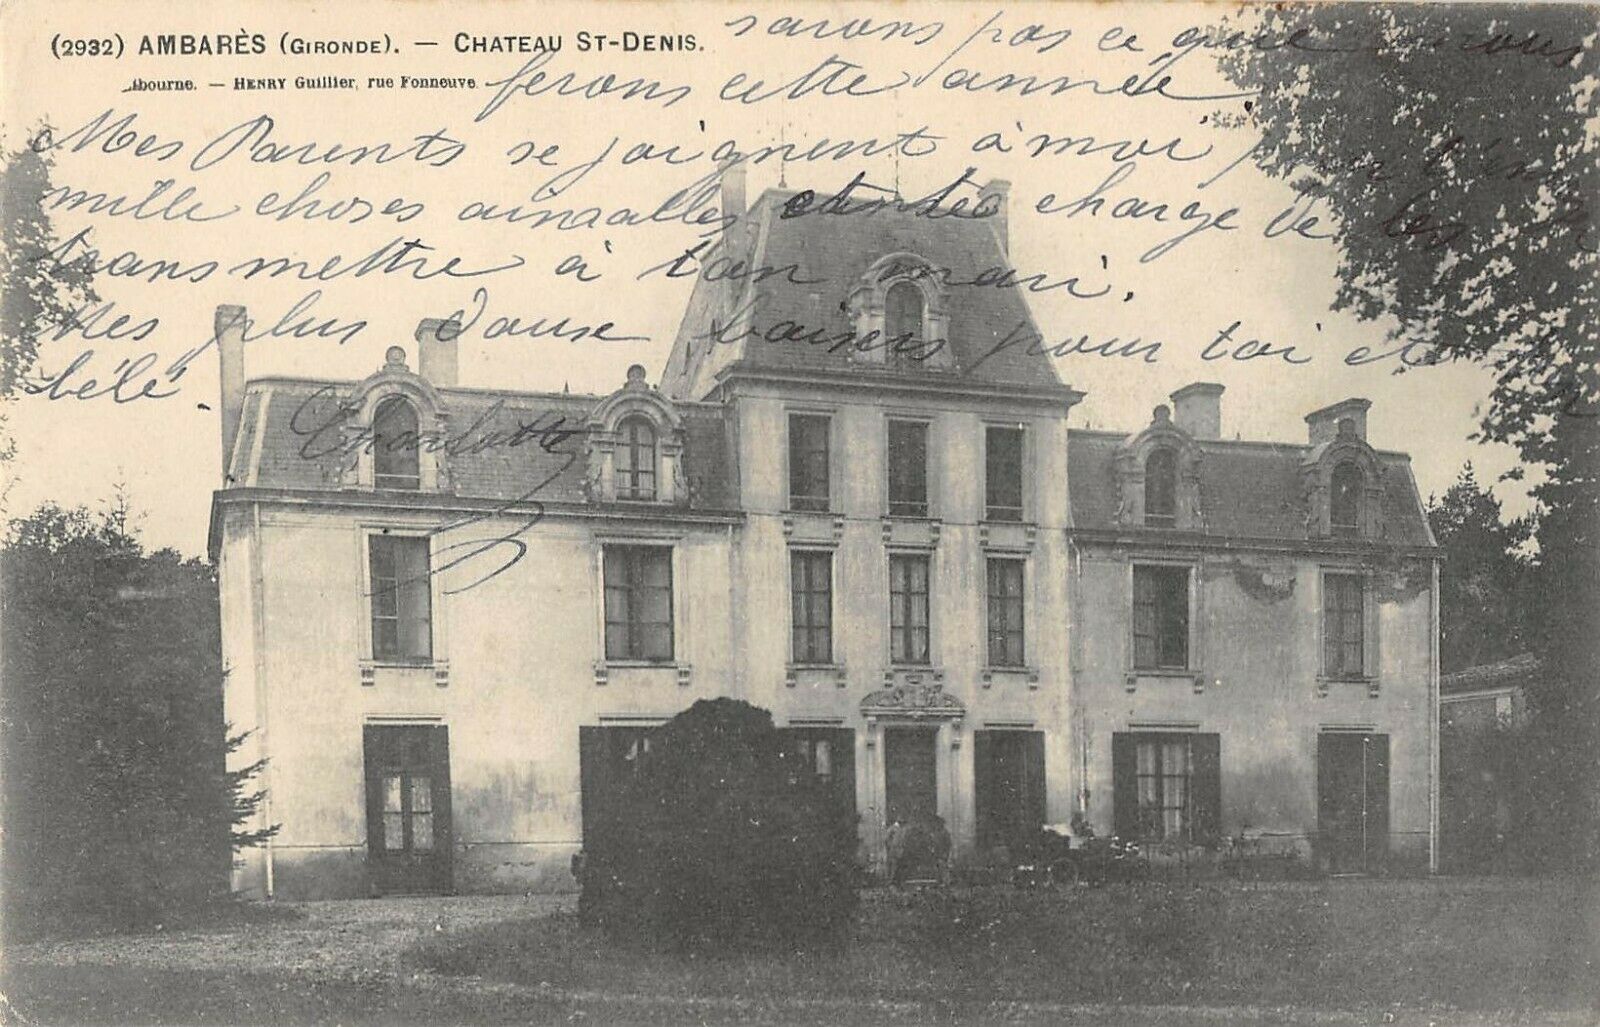 (2932) AMBARÈS (GIRONDE). — CHATEAU ST-DENIS.
ibourne. — HENRY Guillier, rue Fonneuve
savons pas ce que nous
ferons cette année.
Mes Parents se joignent à moi pour t'en
mille choses aimables et te charge de les
transmettre à ton mari.
Mes plus doux baisers pour toi et
bélé.
Charlotte